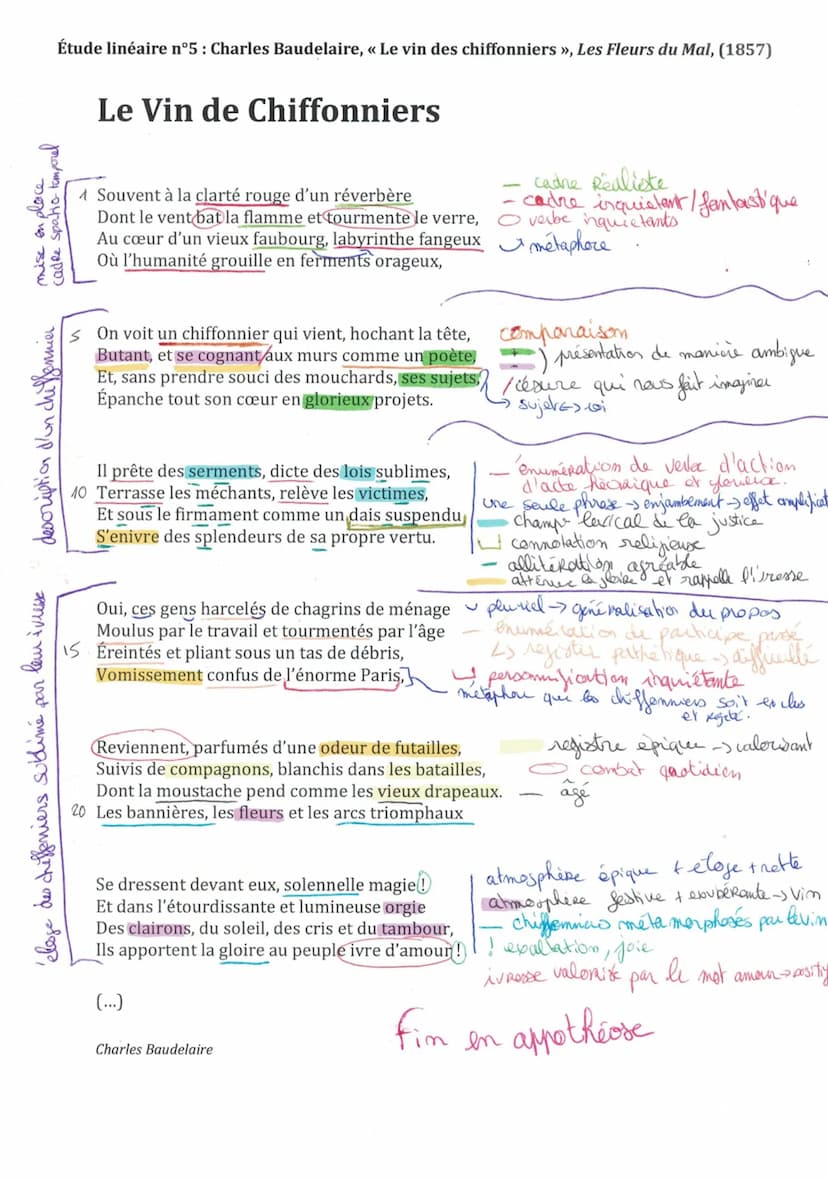 Étude linéaire n°5 : Charles Baudelaire, « Le vin des chiffonniers », Les Fleurs du Mal, (1857)
Le Vin de Chiffonniers
mise en place
cadre spatio-temporel
1 Souvent à la clarté rouge d'un réverbère
Dont le vent bat la flamme et tourmente le verre,
Au cœur d'un vieux faubourg, labyrinthe fangeux
Où l'humanité grouille en ferments orageux,
— cadre Réaliste
- cadre inquiétant / fantastique
verbe inquiétants
métaphore
description d'un chiffonnier
5 On voit un chiffonnier qui vient, hochant la tête,
Butant, et se cognant/aux murs comme un poète,
Et, sans prendre souci des mouchards, ses sujets,
Épanche tout son cœur en glorieux projets.
comparaison
+
-
) présentation de manière ambigue
/ césure qui nous fait imaginer
→ sujet <-> roi
Il prête des serments, dicte des lois sublimes,
10 Terrasse les méchants, relève les victimes,
Et sous le firmament comme un dais suspendu
S'enivre des splendeurs de sa propre vertu.
— énumération de verbe d'action
d'acte héroïque et glorieux.
une seule phrase → enjambement → effet amplificat
champ lexical de la justice
connotation religieuse
— allitération agréable
atténue la gloire et rappelle l'ivresse
éloge des chiffonniers sublimé par leur ivresse
Oui, ces gens harcelés de chagrins de ménage
Moulus par le travail et tourmentés par l'âge
15 Éreintés et pliant sous un tas de débris,
Vomissement confus de l'énorme Paris,
pluriel → généralisation du propos
— énumération de participe passé
↳ registre pathétique → difficulté
personnification inquiétante
métaphore que les chiffonniers soit exclus
et rejeté.
Reviennent, parfumés d'une odeur de futailles,
Suivis de compagnons, blanchis dans les batailles,
Dont la moustache pend comme les vieux drapeaux.
20 Les bannières, les fleurs et les arcs triomphaux
registre épique → valorisant
combat quotidien
— âgé
Se dressent devant eux, solennelle magie !
Et dans l'étourdissante et lumineuse orgie
Des clairons, du soleil, des cris et du tambour,
Ils apportent la gloire au peuple ivre d'amour !
atmosphère épique + éloge +
atmosphère festive + exubérante → vin
— chiffonniers métamorphosés par le vin
! exaltation, joie
ivresse valorisé par le mot amour → positif
(...)
Charles Baudelaire
fin en appothéose